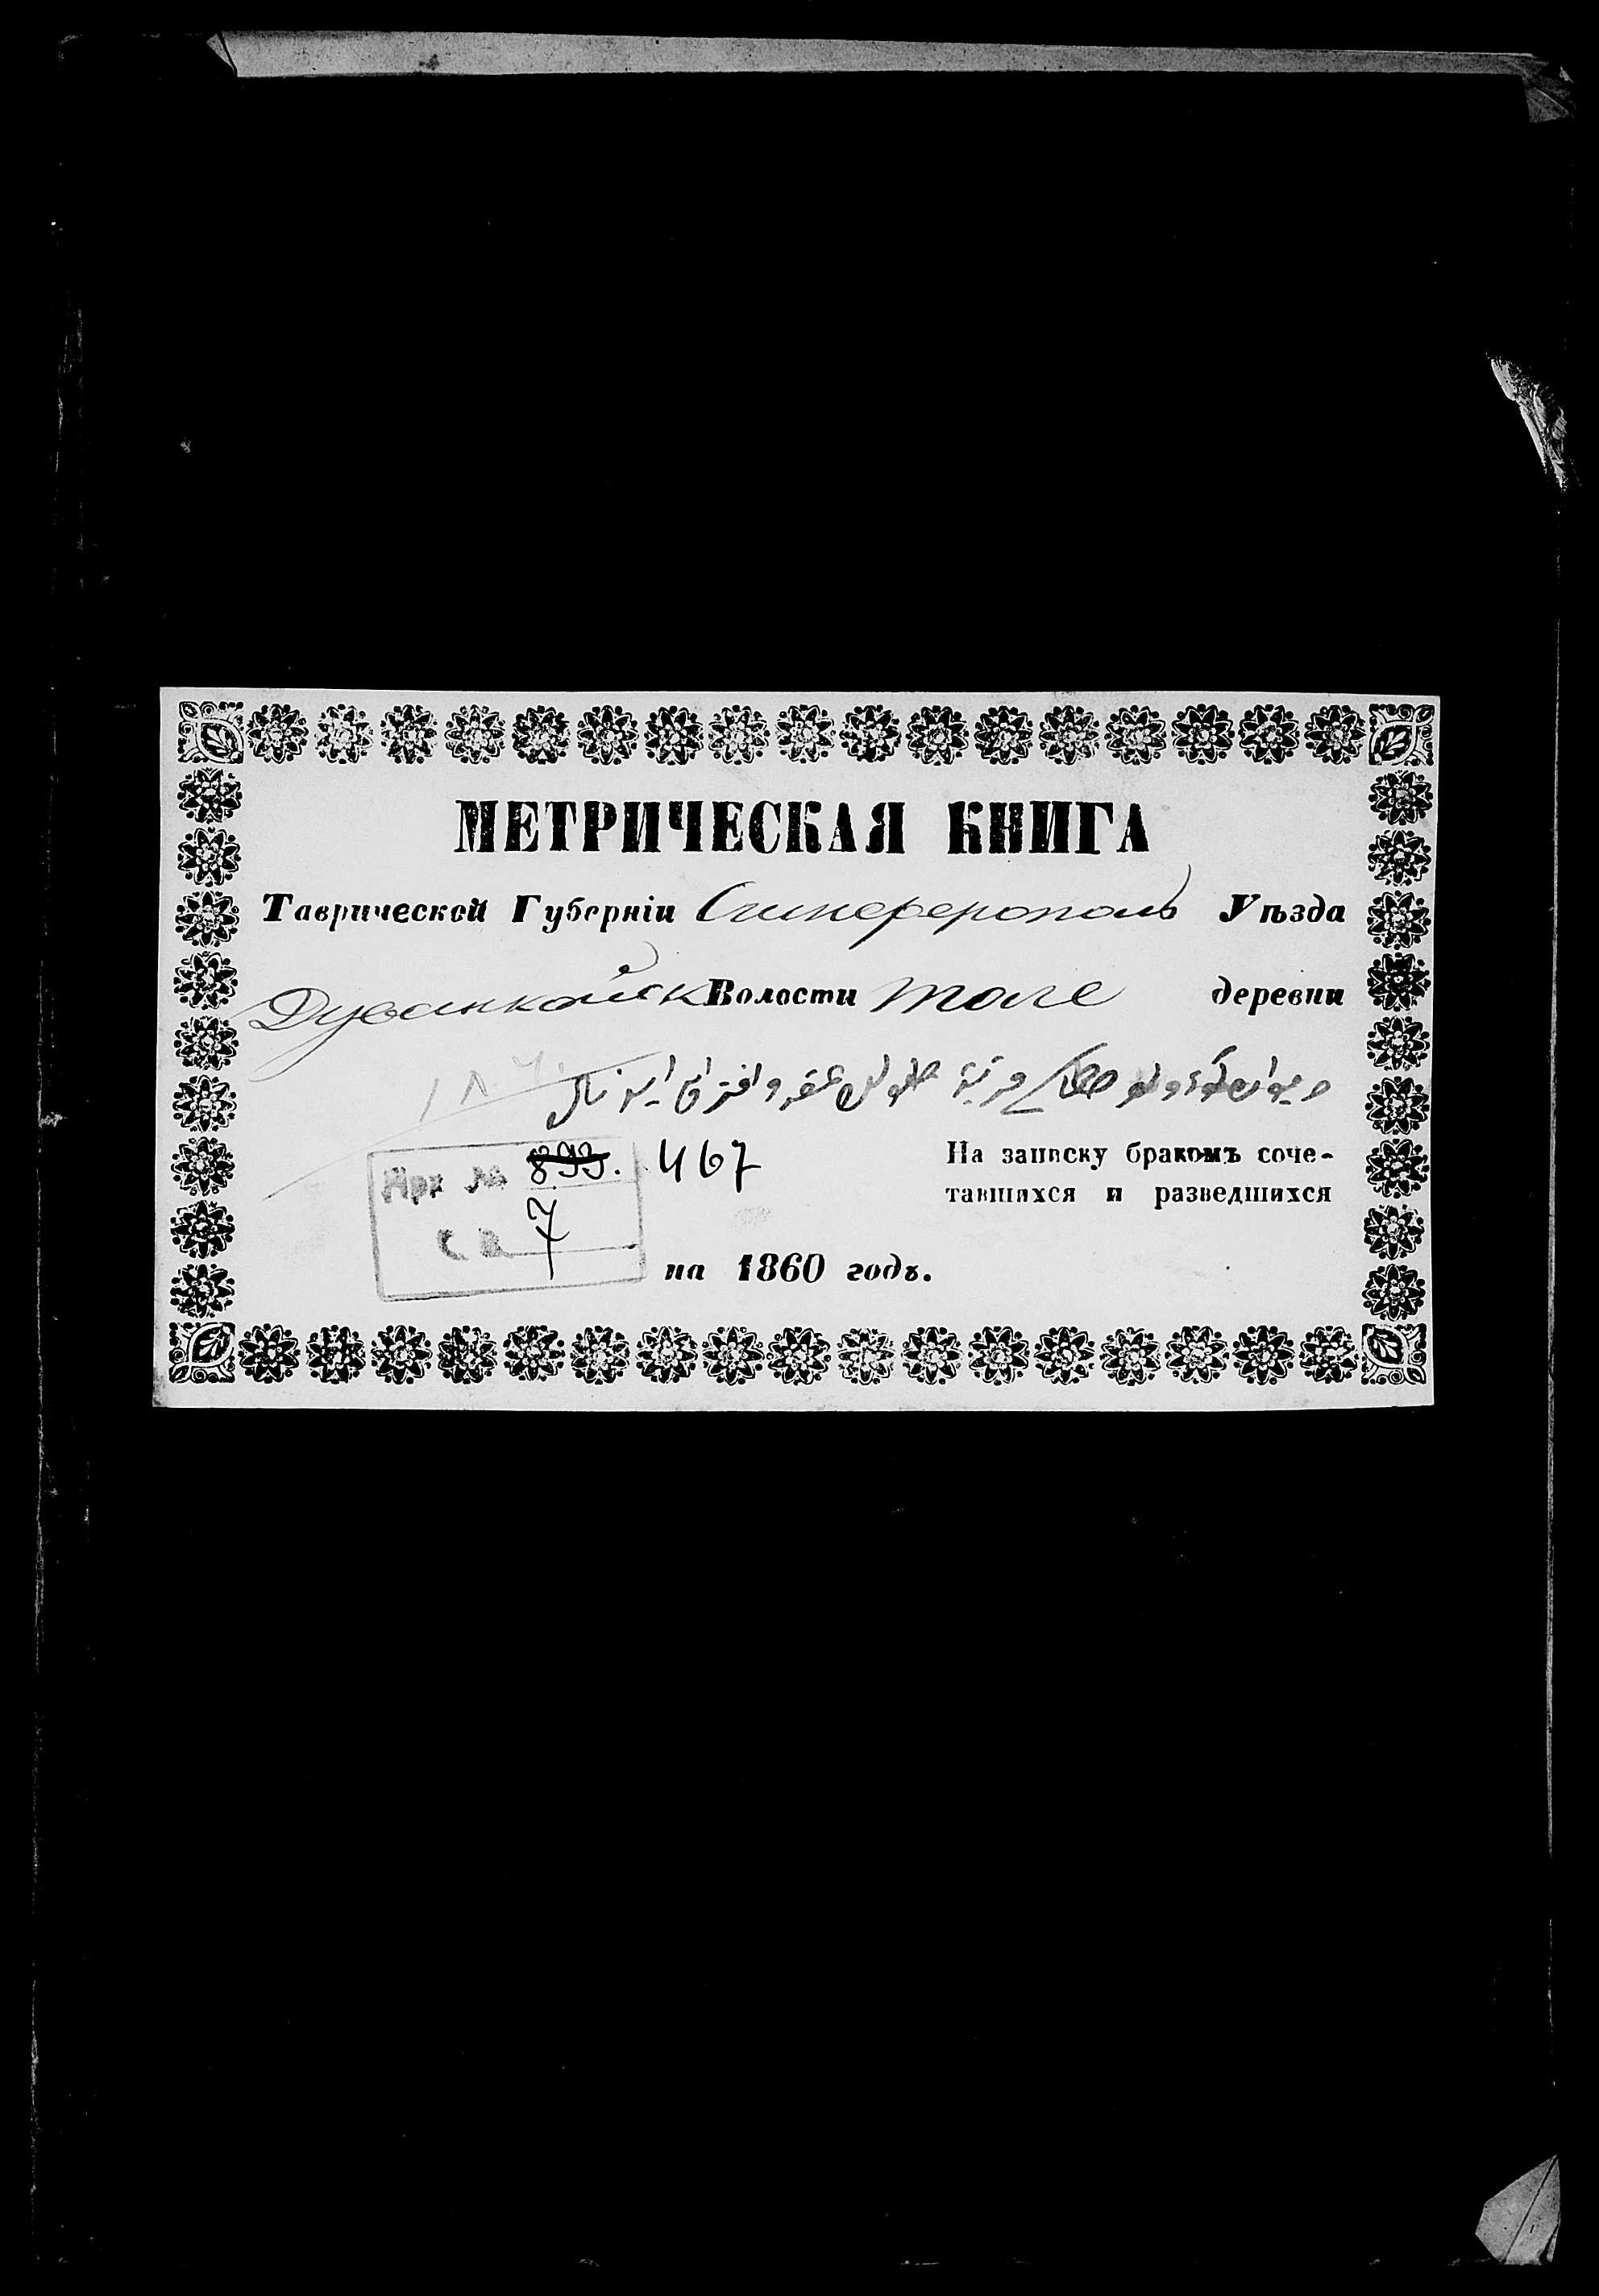 МЕТРИЧЕСКАЯ КНИГА
Таврической Губерніи Симферополь Уѣзда
Дуванкойск Волости Толе деревни
893. 467
На записку бракомъ соче-
тавшихся и разведшихся
Арх №
7
на 1860 годъ.